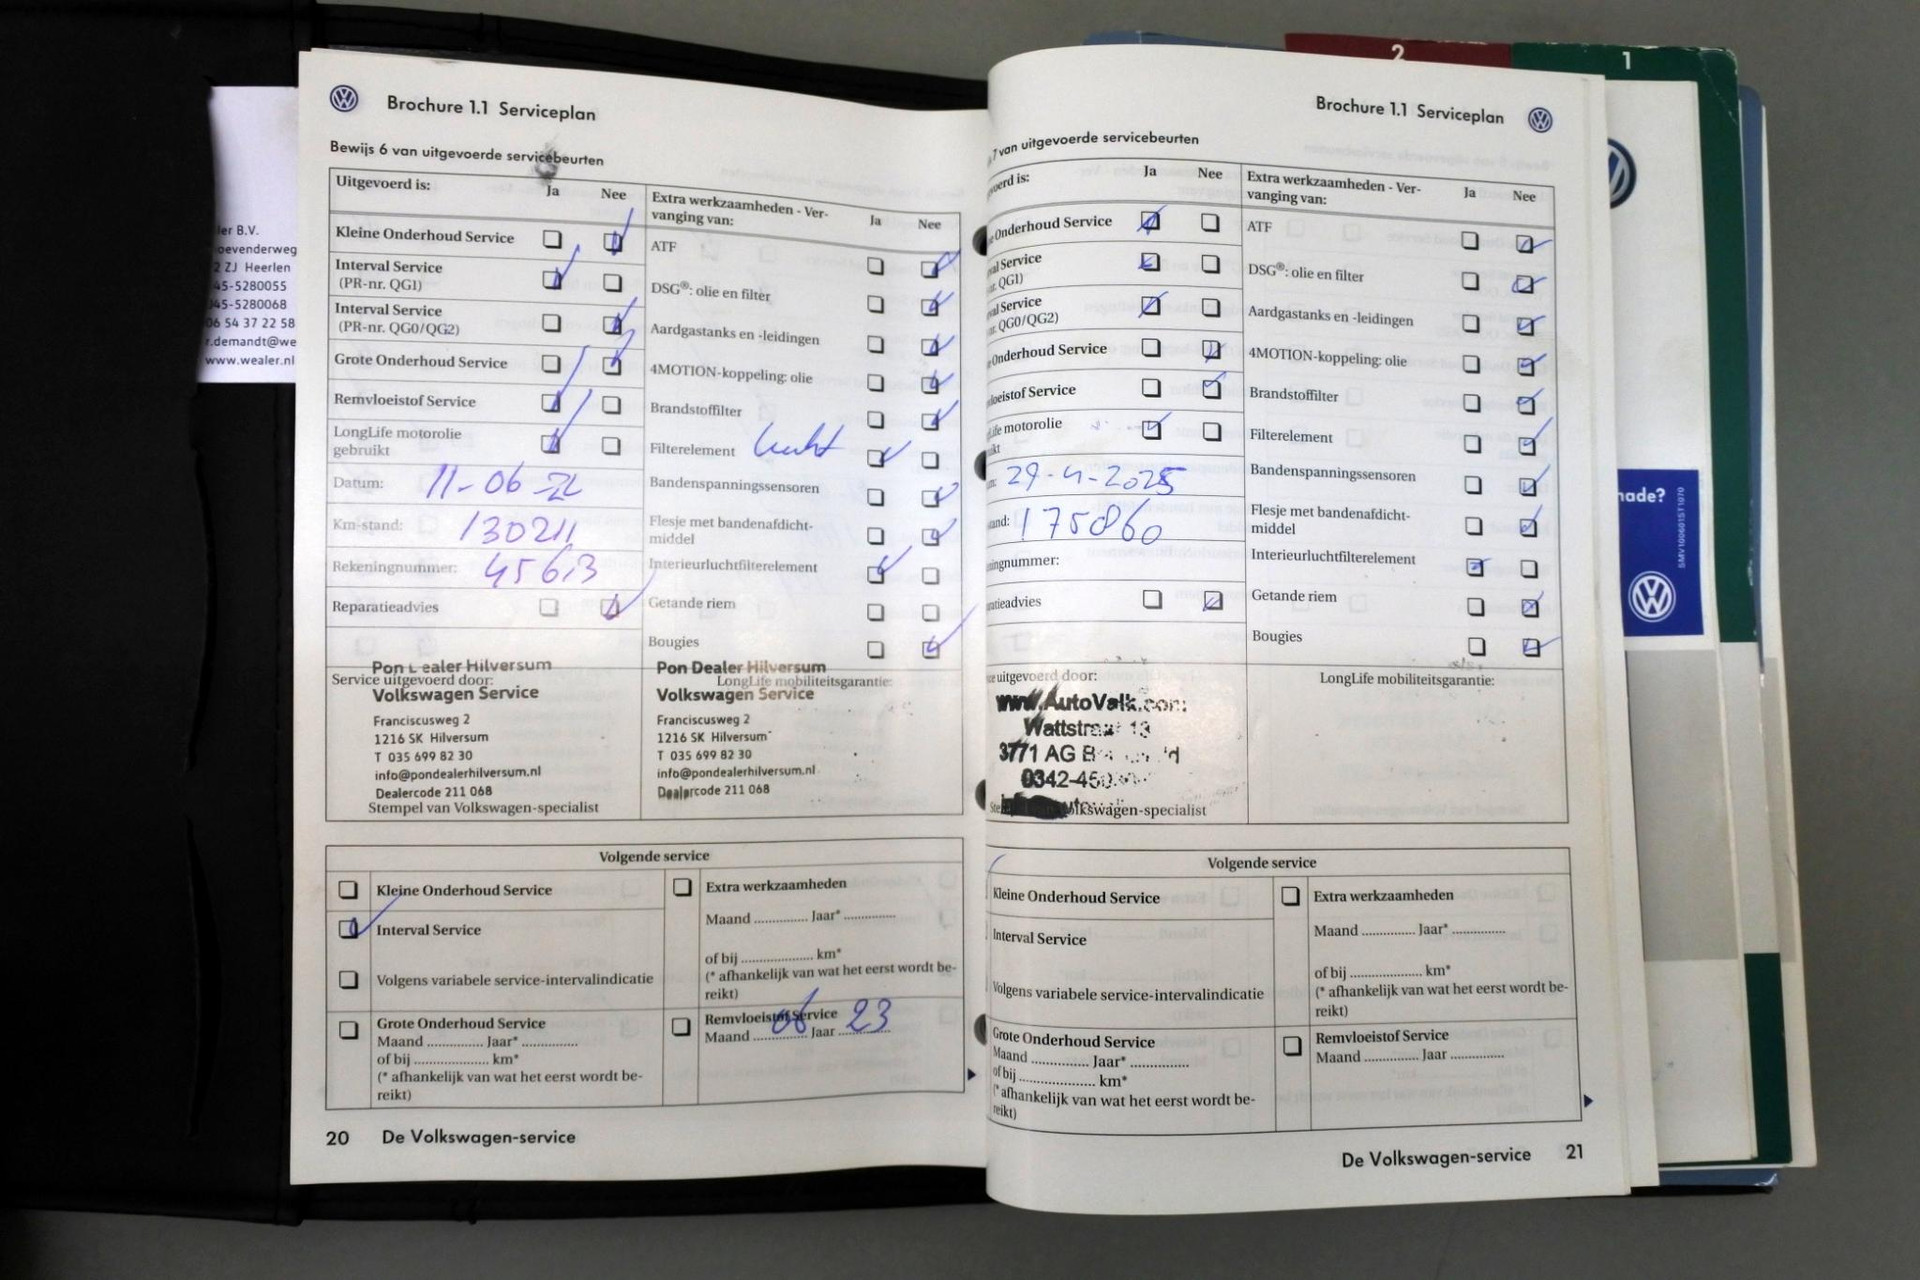 2
1
ler B.V.
oevenderweg
2 ZJ Heerlen
045-5280055
045-5280068
06 54 37 22 58
r.demandt@we
www.wealer.nl
Brochure 1.1 Serviceplan
Bewijs 6 van uitgevoerde servicebeurten
Uitgevoerd is:
Ja
Nee
Kleine Onderhoud Service
Interval Service
(PR-nr. QG1)
Interval Service
(PR-nr. QG0/QG2)
Grote Onderhoud Service
Remvloeistof Service
LongLife motorolie
gebruikt
Datum: 11-06-22
Km-stand: 130211
Rekeningnummer: 45613
Reparatieadvies
Extra werkzaamheden - Ver-
vanging van:
Ja
Nee
ATF
DSG®: olie en filter
Aardgastanks en -leidingen
4MOTION-koppeling: olie
Brandstoffilter
Filterelement lucht
Bandenspanningssensoren
Flesje met bandenafdicht-
middel
Interieurluchtfilterelement
Getande riem
Bougies
Pon Dealer Hilversum
Service uitgevoerd door:
Volkswagen Service
Franciscusweg 2
1216 SK Hilversum
T 035 699 82 30
info@pondealerhilversum.nl
Dealercode 211 068
Stempel van Volkswagen-specialist
Pon Dealer Hilversum
LongLife mobiliteitsgarantie:
Volkswagen Service
Franciscusweg 2
1216 SK Hilversum
T 035 699 82 30
info@pondealerhilversum.nl
Dealercode 211 068
Volgende service
Kleine Onderhoud Service
Interval Service
Volgens variabele service-intervalindicatie
Grote Onderhoud Service
Maand ............. Jaar* .............
of bij ................. km*
(* afhankelijk van wat het eerst wordt be-
reikt)
Extra werkzaamheden
Maand ............. Jaar* .............
of bij ................. km*
(* afhankelijk van wat het eerst wordt be-
reikt)
Remvloeistof Service
Maand 06 Jaar 23
20 De Volkswagen-service
Brochure 1.1 Serviceplan
7 van uitgevoerde servicebeurten
voerd is:
Ja
Nee
e Onderhoud Service
val Service
nr. QG1)
val Service
nr. QG0/QG2)
e Onderhoud Service
loeistof Service
Life motorolie
ikt
29-4-2025
tand: 175860
ningnummer:
ratieadvies
Extra werkzaamheden - Ver-
vanging van:
Ja
Nee
ATF
DSG®: olie en filter
Aardgastanks en -leidingen
4MOTION-koppeling: olie
Brandstoffilter
Filterelement
Bandenspanningssensoren
Flesje met bandenafdicht-
middel
Interieurluchtfilterelement
Getande riem
Bougies
ce uitgevoerd door:
www.AutoValk.com
Wattstraat 13
3771 AG
0342-45
Volkswagen-specialist
LongLife mobiliteitsgarantie:
Volgende service
Kleine Onderhoud Service
Interval Service
Volgens variabele service-intervalindicatie
Grote Onderhoud Service
Maand ............. Jaar* .............
of bij ................. km*
(* afhankelijk van wat het eerst wordt be-
reikt)
Extra werkzaamheden
Maand ............. Jaar* .............
of bij ................. km*
(* afhankelijk van wat het eerst wordt be-
reikt)
Remvloeistof Service
Maand ............. Jaar .............
De Volkswagen-service 21
nade?
SMV1006015T1070